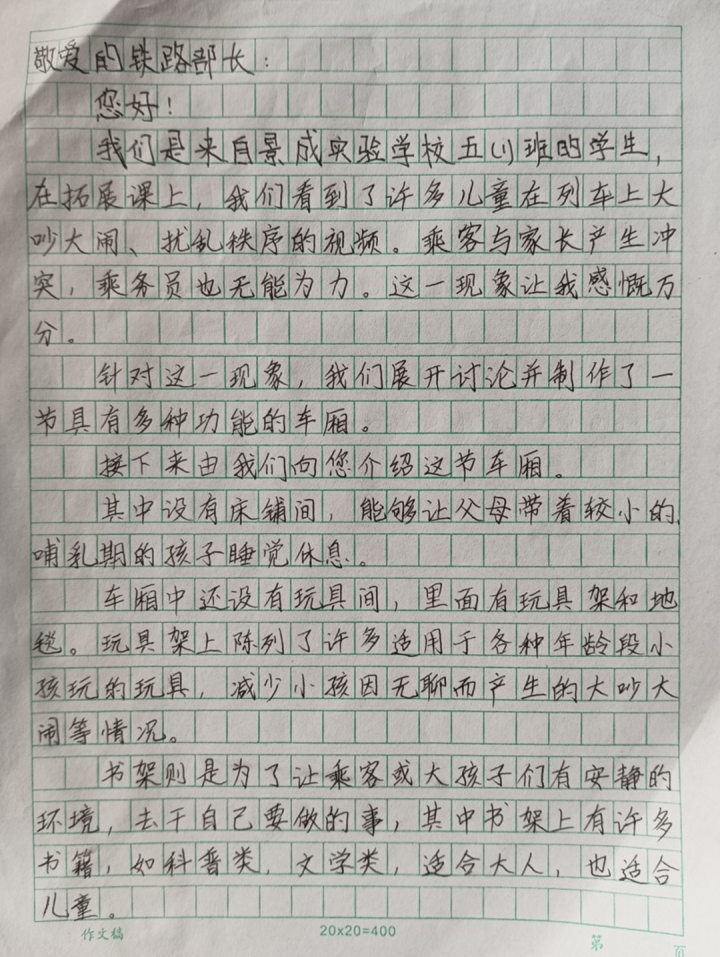 敬爱的铁路部长：
您好！
我们是来自景成实验学校五(1)班的学生，
在拓展课上，我们看到了许多儿童在列车上大
吵大闹、扰乱秩序的视频。乘客与家长产生冲
突，乘务员也无能为力。这一现象让我感慨万
分。
针对这一现象，我们展开讨论并制作了一
节具有多种功能的车厢。
接下来由我们向您介绍这节车厢。
其中设有床铺间，能够让父母带着较小的、
哺乳期的孩子睡觉休息。
车厢中还设有玩具间，里面有玩具架和地
毯。玩具架上陈列了许多适用于各种年龄段小
孩玩的玩具，减少小孩因无聊而产生的大吵大
闹等情况。
书架则是为了让乘客或大孩子们有安静的
环境，去干自己要做的事，其中书架上有许多
书籍，如科普类，文学类，适合大人，也适合
儿童。
作文稿 20x20=400 第 页